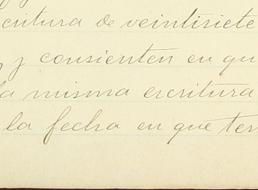 critura de veintisiete
y consienten en qu
la misma escritura
la fecha en que ten